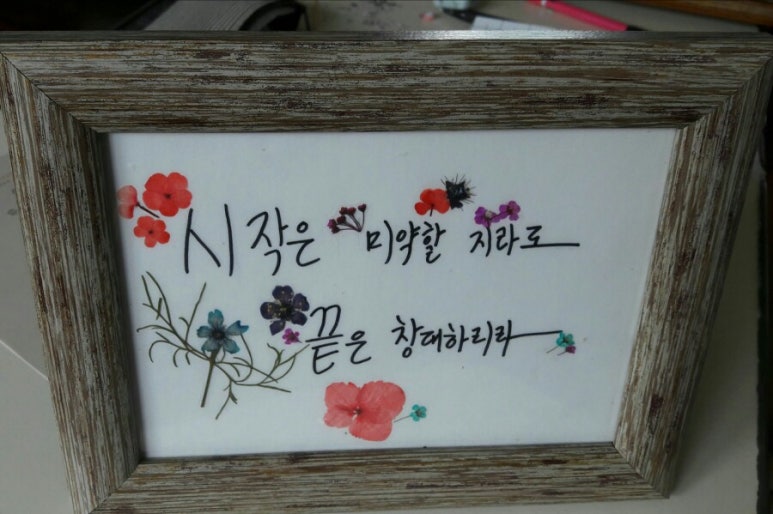 시작은 미약할 지라도
끝은 창대하리라